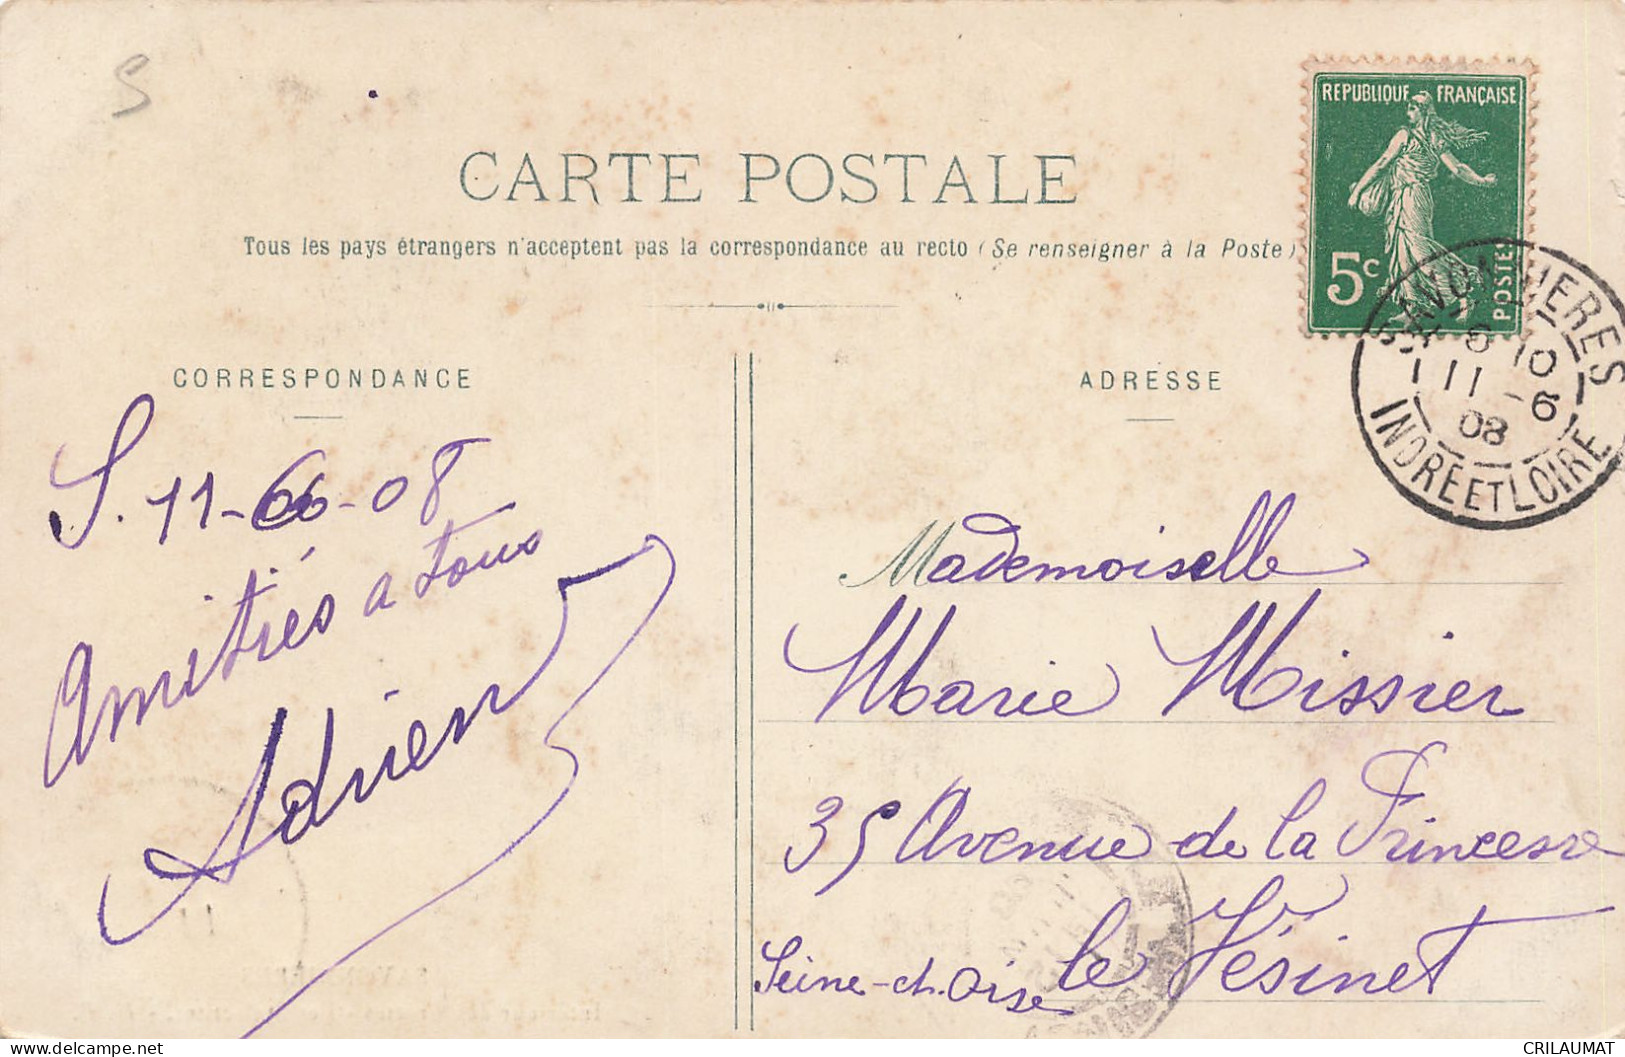 S
CARTE POSTALE
Tous les pays étrangers n'acceptent pas la correspondance au recto (Se renseigner à la Poste)
REPUBLIQUE FRANÇAISE
5c
POSTES
SAVONNIERES
8 10
11 -6
08
INDRE ET LOIRE
CORRESPONDANCE
S. 11-6-08
Amitiés a tous
Adrien
ADRESSE
Mademoiselle
Marie Missier
35 Avenue de la Princesse
le Vésinet
Seine-et-Oise
CRILAUMAT